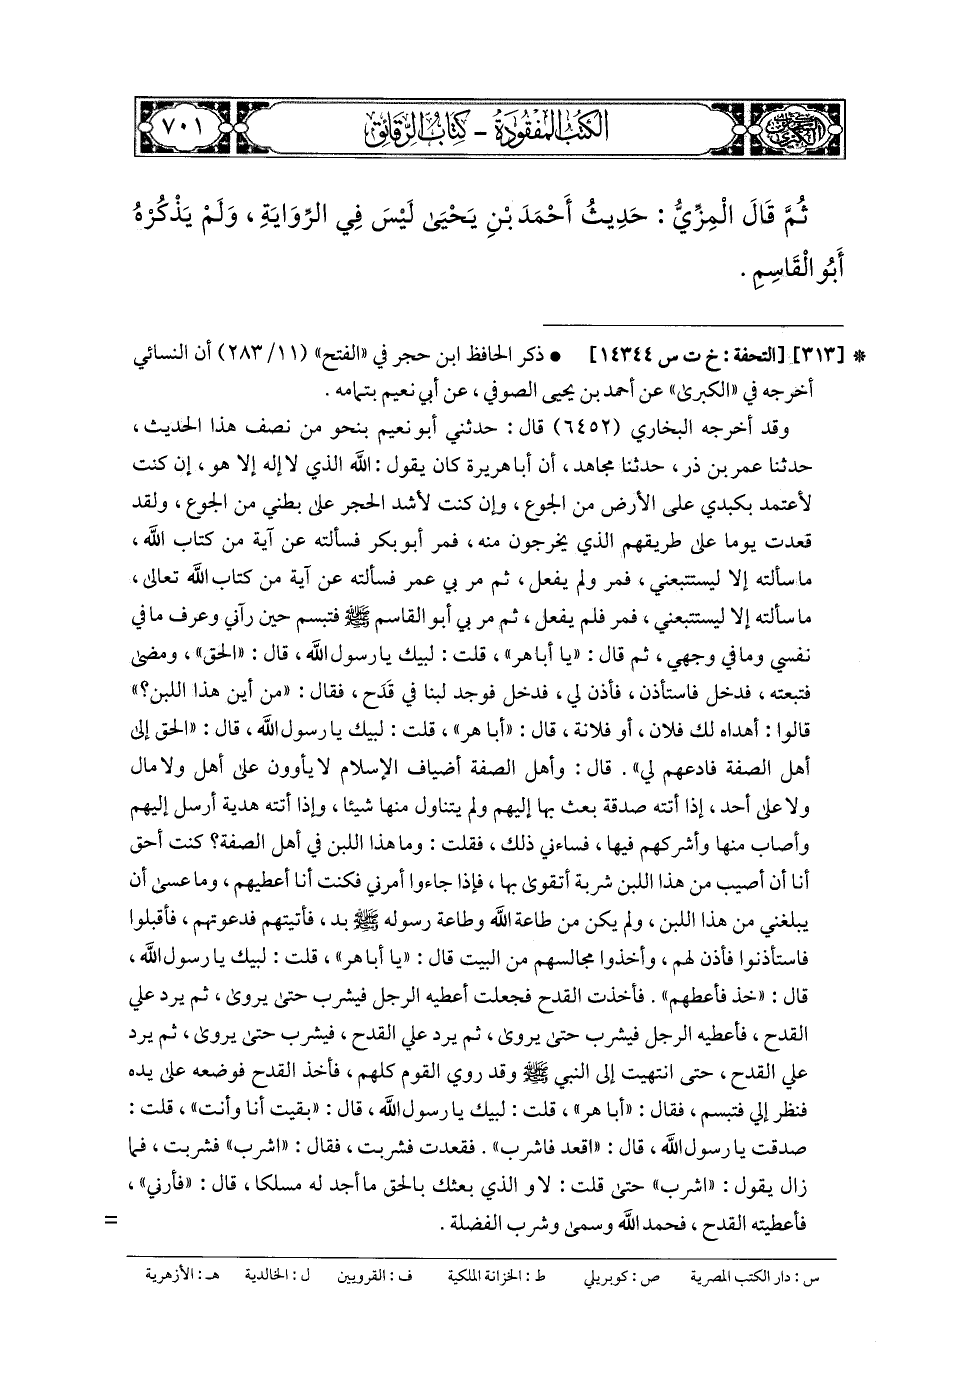 الكتب المفقودة - كتاب الرقائق
٧٠١
ثُمَّ قَالَ الْمِزِّيُّ : حَدِيثُ أَحْمَدَ بْنِ يَحْيَىٰ لَيْسَ فِي الرِّوَايَةِ ، وَلَمْ يَذْكُرْهُ
أَبُو الْقَاسِمِ .
* [٣١٣] [التحفة : خ ت س ١٤٣٤٤] • ذكر الحافظ ابن حجر في «الفتح» (١١/ ٢٨٣) أن النسائي
أخرجه في «الكبرىٰ» عن أحمد بن يحيى الصوفي ، عن أبي نعيم بتمامه .
وقد أخرجه البخاري (٦٤٥٢) قال : حدثني أبو نعيم بنحو من نصف هذا الحديث ،
حدثنا عمر بن ذر ، حدثنا مجاهد ، أن أبا هريرة كان يقول : الله الذي لا إله إلا هو ، إن كنت
لأعتمد بكبدي على الأرض من الجوع ، وإن كنت لأشد الحجر على بطني من الجوع ، ولقد
قعدت يوما على طريقهم الذي يخرجون منه ، فمر أبو بكر فسألته عن آية من كتاب الله ،
ما سألته إلا ليستتبعني ، فمر ولم يفعل ، ثم مر بي عمر فسألته عن آية من كتاب الله تعالى ،
ما سألته إلا ليستتبعني ، فمر فلم يفعل ، ثم مر بي أبو القاسم ﷺ فتبسم حين رآني وعرف ما في
نفسي وما في وجهي ، ثم قال : «يا أبا هر» ، قلت : لبيك يا رسول الله ، قال : «الحق» ، ومضىٰ
فتبعته ، فدخل فاستأذن ، فأذن لي ، فدخل فوجد لبنا في قَدَح ، فقال : «من أين هذا اللبن؟»
قالوا : أهداه لك فلان ، أو فلانة ، قال : «أبا هر» ، قلت : لبيك يا رسول الله ، قال : «الحق إلى
أهل الصفة فادعهم لي» . قال : وأهل الصفة أضياف الإسلام لا يأوون على أهل ولا مال
ولا على أحد ، إذا أتته صدقة بعث بها إليهم ولم يتناول منها شيئا ، وإذا أتته هدية أرسل إليهم
وأصاب منها وأشركهم فيها ، فساءني ذلك ، فقلت : وما هذا اللبن في أهل الصفة؟ كنت أحق
أنا أن أصيب من هذا اللبن شربة أتقوىٰ بها ، فإذا جاءوا أمرني فكنت أنا أعطيهم ، وما عسىٰ أن
يبلغني من هذا اللبن ، ولم يكن من طاعة الله وطاعة رسوله ﷺ بد ، فأتيتهم فدعوتهم ، فأقبلوا
فاستأذنوا فأذن لهم ، وأخذوا مجالسهم من البيت قال : «يا أبا هر» ، قلت : لبيك يا رسول الله ،
قال : «خذ فأعطهم» . فأخذت القدح فجعلت أعطيه الرجل فيشرب حتىٰ يروىٰ ، ثم يرد علي
القدح ، فأعطيه الرجل فيشرب حتىٰ يروىٰ ، ثم يرد علي القدح ، فيشرب حتىٰ يروىٰ ، ثم يرد
علي القدح ، حتى انتهيت إلى النبي ﷺ وقد روي القوم كلهم ، فأخذ القدح فوضعه علىٰ يده
فنظر إلي فتبسم ، فقال : «أبا هر» ، قلت : لبيك يا رسول الله ، قال : «بقيت أنا وأنت» ، قلت :
صدقت يا رسول الله ، قال : «اقعد فاشرب» . فقعدت فشربت ، فقال : «اشرب» فشربت ، فما
زال يقول : «اشرب» حتىٰ قلت : لا و الذي بعثك بالحق ما أجد له مسلكا ، قال : «فأرني» ،
فأعطيته القدح ، فحمد الله وسمىٰ وشرب الفضلة .
=
س : دار الكتب المصرية ص : كوبريلي ط : الخزانة الملكية ف : القرويين ل : الخالدية هـ : الأزهرية